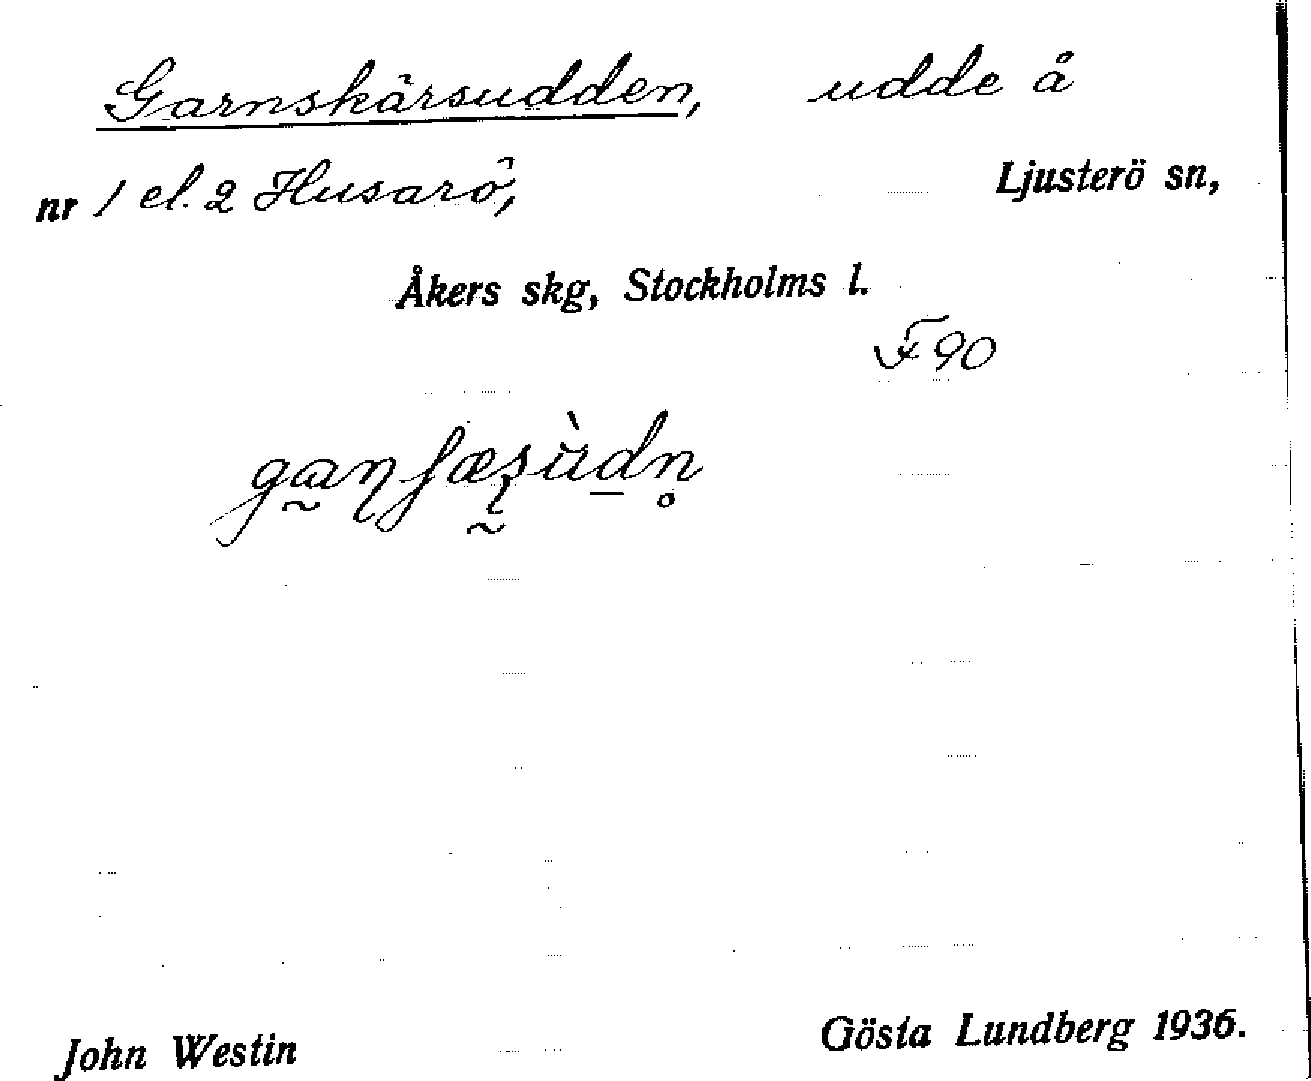 Garnskärsudden, udde å
nr 1 el. 2 Husarö, Ljusterö sn,
Åkers skg, Stockholms l.
F 90
John Westin Gösta Lundberg 1936.